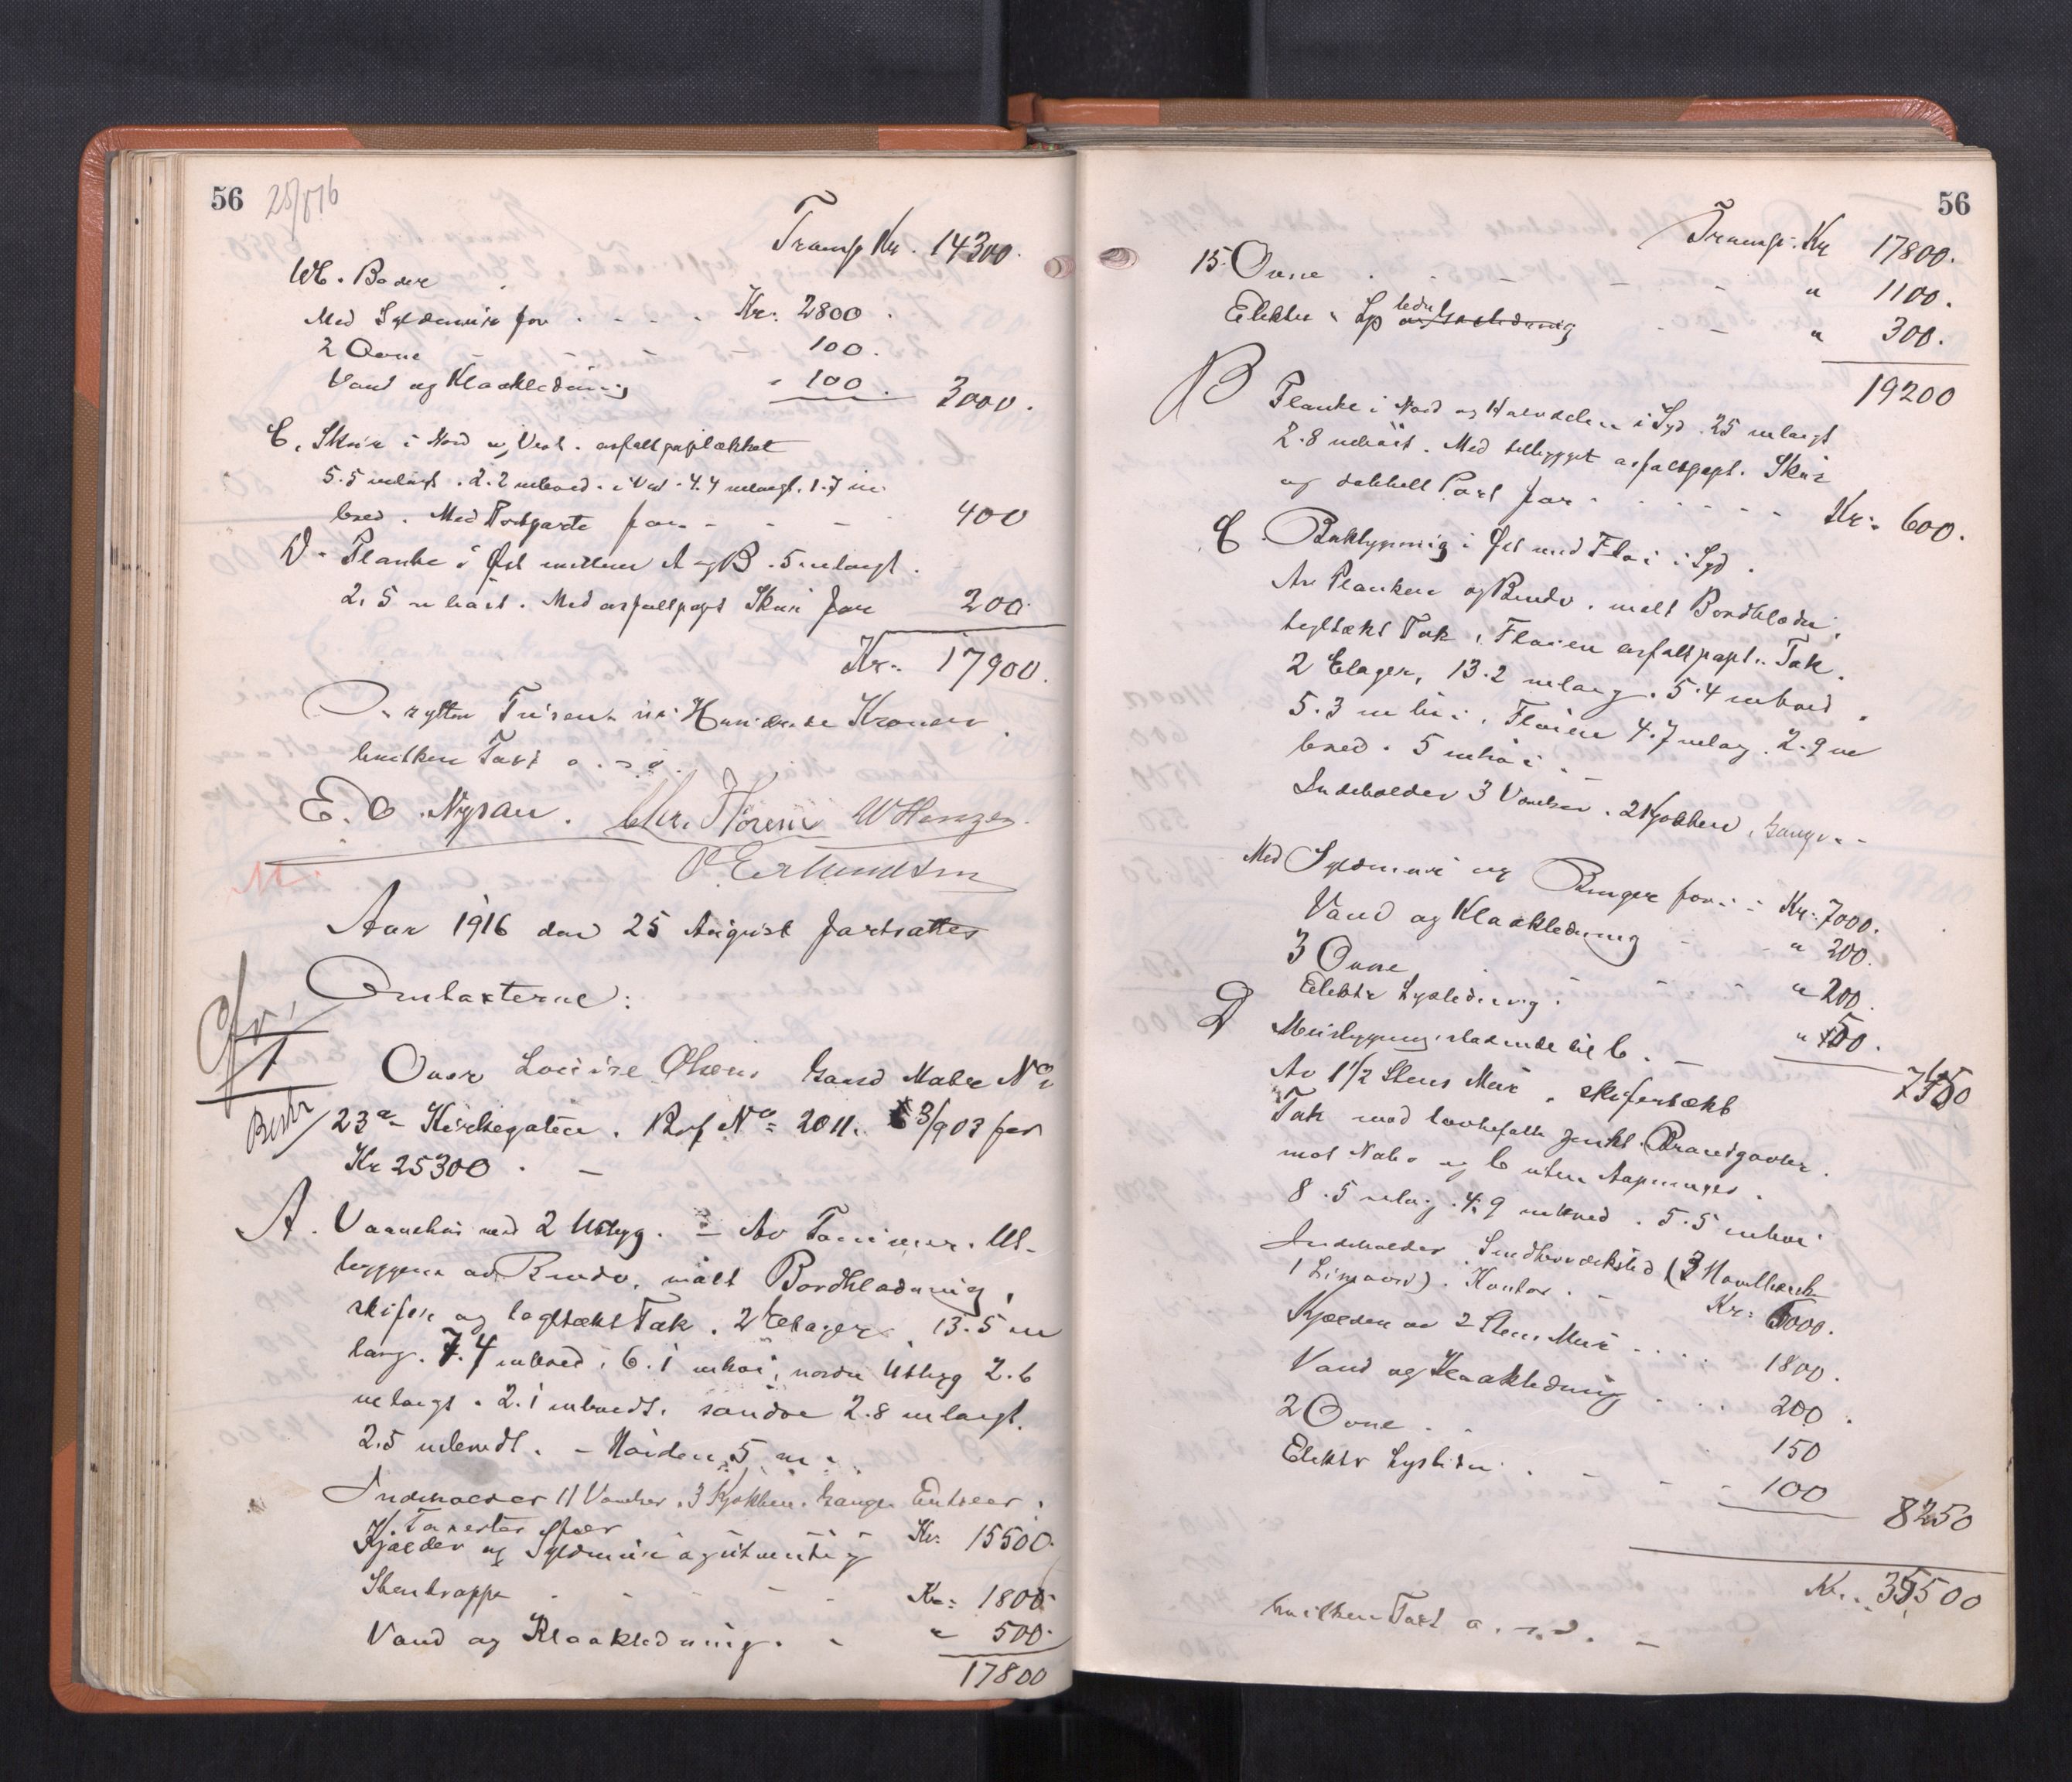 56 25/8 16
Transp Kr. 14300.
WC. Boder
Med Syldmur for . . . . Kr. 2800.
2 Ovne - - - - 100.
Vand og Kloakledning " 100. 3000.
C. Skur i Nord og Vest. asfaltpaptækket
5.5 m langt. 2.2 m bred. i Vest. 4.4 m langt. 1.7 m
bred. Med Portgavte for - - - 400
D. Planke i Øst mellem A og B. 5 m langt.
2,5 m høit. Med asfaltpapt Skur for 200
Kr. 17900.
Hundrede Kroner.
hvilken Taxt a. s. o.
E. O. Nysau. Chr. W Henzen.
Aar 1916 den 25 August fortsattes
Omtaxterne:
Cfr.
1
Besk
Over Louise Olsens Gaard Matr No
23a Kirkegaten. Brf No 2011. 3/903 for
Kr 25300. -
A. Vaanehus med 2 Utbyg. - Av Tømmer. Ut-
byggene av Bindv. malt Bordklædning,
skifer og teglsækt Tak. 2 Etager 13.5 m
lang. 7.4 m bred, 6.1 m høi, nordre Utbyg 2.6
m langt. 2.1 m bredt. søndre 2.8 m langt.
2.5 m bredt. - Høiden 5 m.
Indeholder 11 Værelser. 3 Kjøkken. Gange Entreer.
Kr. 15500.
Kjælder og Syldmur og utvendig
Stentrappe - - - - Kr: 1800.
Vand og Kloakledning. - " 500.
17800
56
Transp. Kr 17800.
15 Ovne . - - - - " 1100.
Elektr. Ly ledn - - " 300.
19200
B Planke i Nord og Halvdelen i Syd. 25 m langt
2.8 m høit. Med tilbygget asfaltpapt. Skur
og dobbelt Port for - - - - - Kr. 600.
C. Bakbygning i Øst med Fløi i Syd.
Av Planker og Bindv. malt Bordklædn,
teglsækt Tak, Fløien asfaltpapt. Tak.
2 Etager, 13.2 m lang. 5.4 m bred.
5.3 m høi, Fløien 4.7 m lag. 2.9 m
bred. 5 m høi. -
Indeholder 3 Værelser. 2 Kjøkken, Gange. -
Med Syldmur og for. - Kr. 7000.
Vand og Kloakledning - " 200.
3 Ovne . - - - " 200.
Elektr Lysledning. - " 50.
7450
D Murbygning støtende til C. -
Av 1 1/2 Stens Mur, skifertækt
Tak med Brandgavler.
mot Nabo og C uten Aapninger.
8.5 m lag. 4.9 m bred. 5.5 m høi
Indeholder Snedkerværksted (3 Høvlbænk
1 Limovn). Kontor. - Kr: 6000.
Kjælder av 2 Stens Mur . . . . 1800.
Vand og Kloakledning . . . . 200.
2 Ovne . . 150
Elektr Lysledn. - - - 100
8250
Kr. 35500
hvilken Taxt a. s. o. -